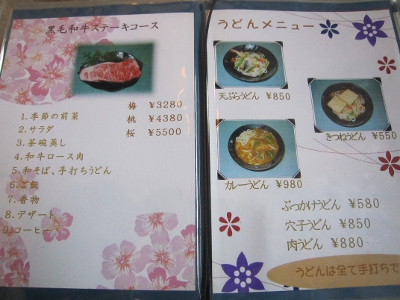 黒毛和牛ステーキコース
梅 ¥3280
桃 ¥4380
桜 ¥5500
1.季節の前菜
2.サラダ
3.茶碗蒸し
4.和牛ロース肉
5.和そば、手打ちうどん
6.ご飯
7.香物
8.デザート
9.コーヒー
うどんメニュー
天ぷらうどん ¥850
きつねうどん ¥550
カレーうどん ¥980
ぶっかけうどん ¥580
穴子うどん ¥880
肉うどん ¥880
うどんは全て手打ちで